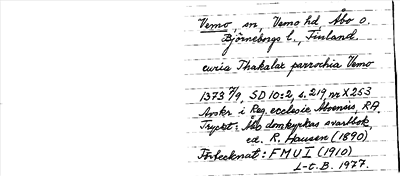 Vemo, sn, Vemo hd, Åbo o.
Björneborgs l., Finland.
curia Thakalax parrochia Vemo
1373 7/9, SD 10:2, s. 219 nr X253
Avskr i Reg. ecclesie Aboensis, RA.
Tryckt: Åbo domkyrkas svartbok,
ed. R. Hausen (1890)
Förtecknat: FMU I (1910)
L-t.B. 1977.